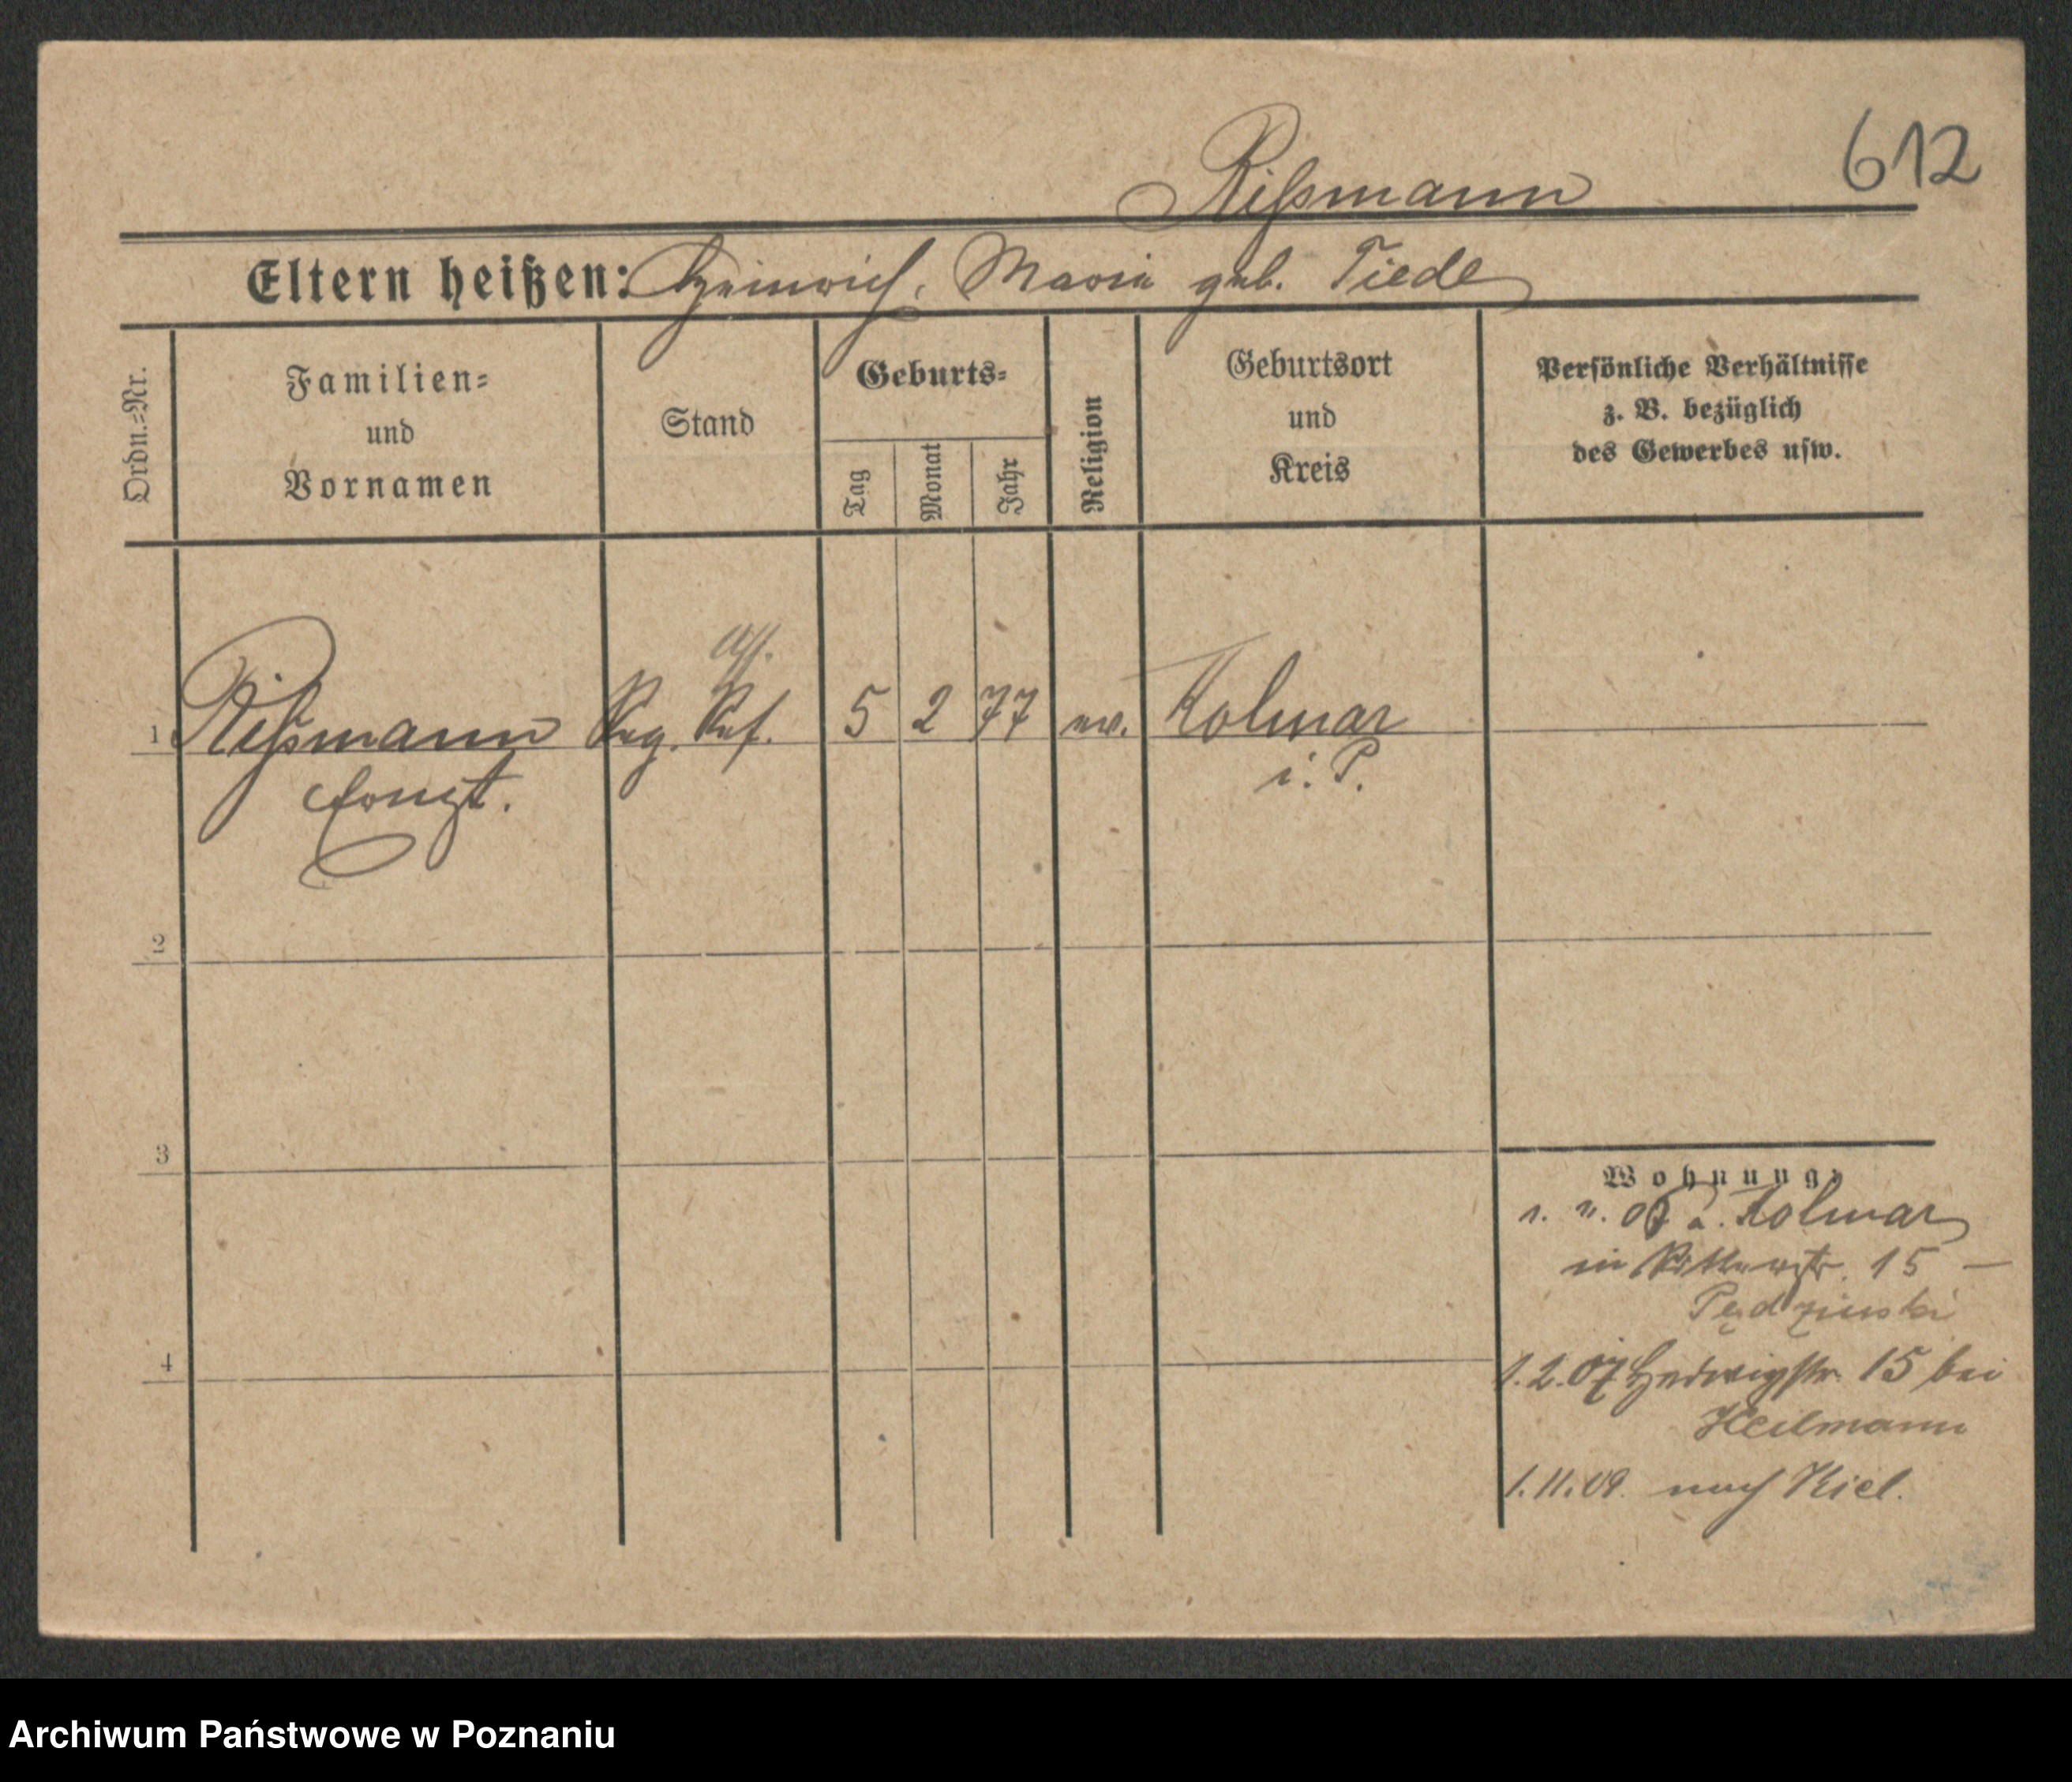 612
Rißmann
Eltern heißen: Heinrich, Marie geb. Tiede
Ordn.-Nr.
Familien-
und
Vornamen
Stand
Geburts-
Tag
Monat
Jahr
Religion
Geburtsort
und
Kreis
Persönliche Verhältnisse
z. B. bezüglich
des Gewerbes usw.
Ass.
1 Rißmann Reg. Ref. 5 2 77 ev. Kolmar
Ernst. i. P.
2
3
4
Wohnung:
a. Kolmar
in Ritterstr. 15 –
Pędzinski
1.2.07 Hedwigstr. 15 bei
Heilmann
1.11.09. nach Kiel.
Archiwum Państwowe w Poznaniu